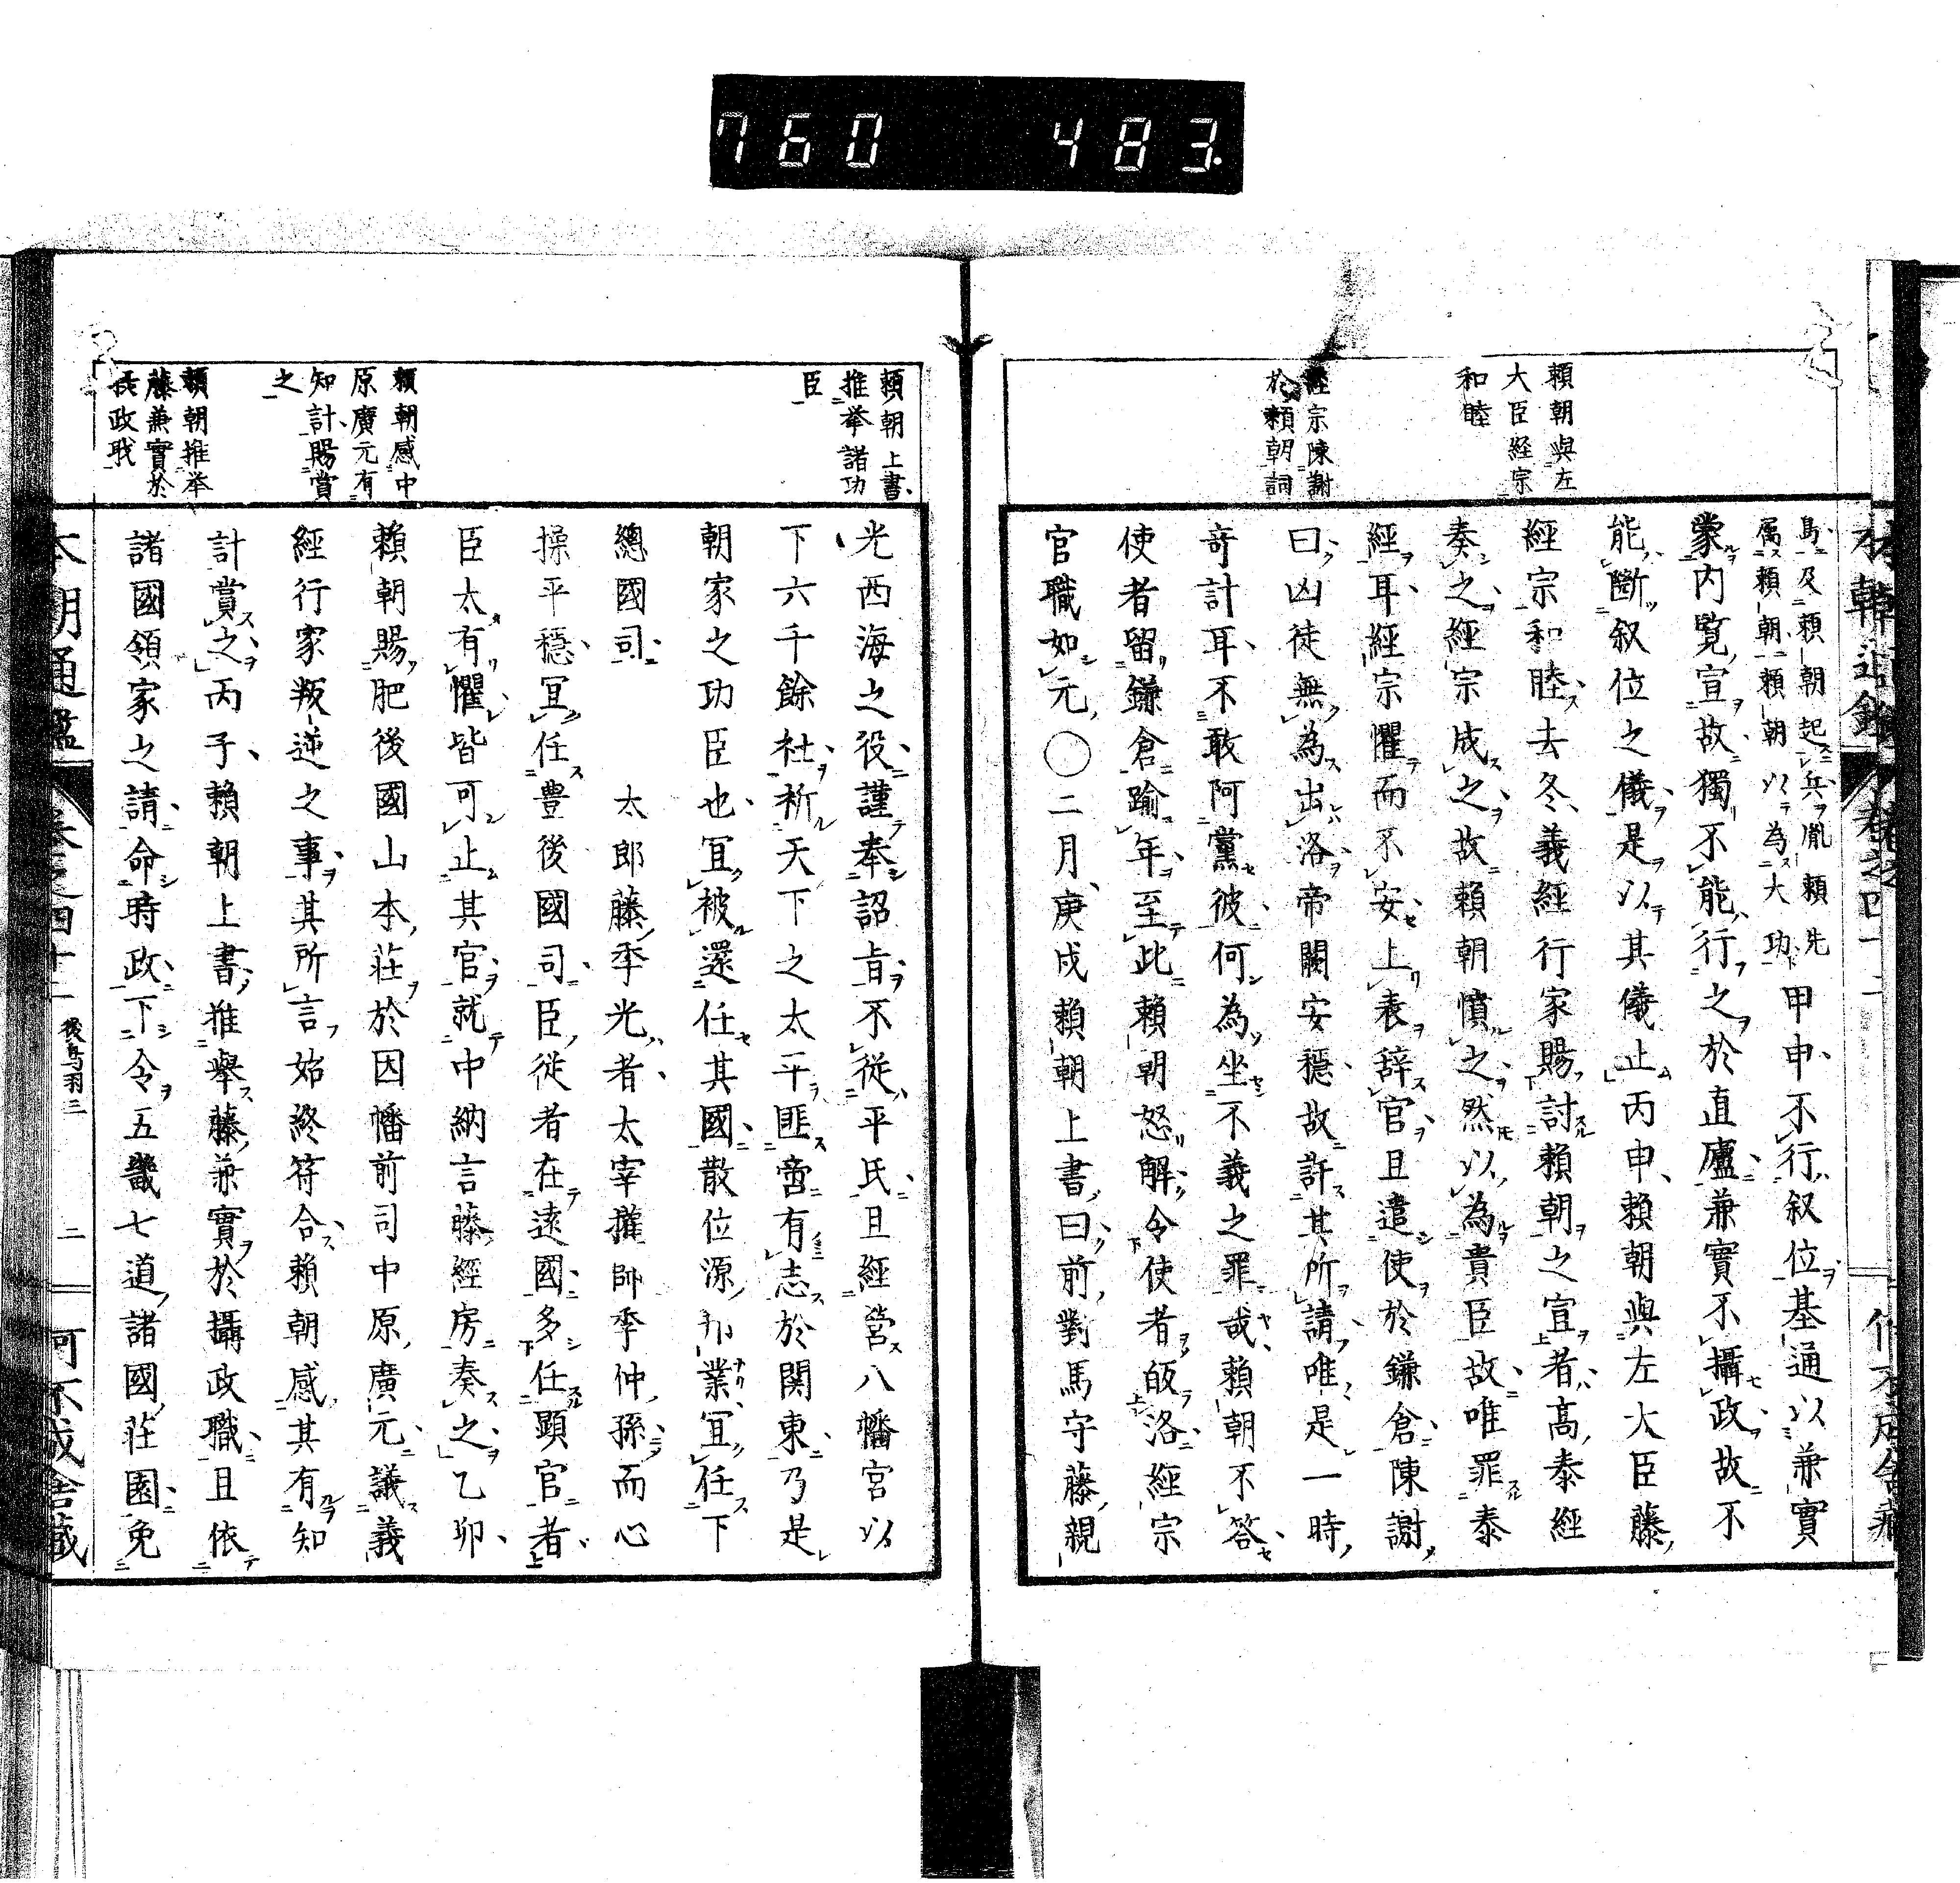 760 483.
頼朝與左
大臣經宗
和睦
經宗陳謝
於頼朝詞
島及頼朝起兵胤頼先
属頼朝頼朝以為大功
甲申不行叙位基通以兼實
蒙内覧宣故獨不能行之於直廬兼實不攝政故不
能斷叙位之儀是以其儀止丙申頼朝與左大臣藤
經宗和睦去冬義經行家賜討頼朝之宣者高泰經
奏之經宗成之故頼朝憤之然以為貴臣故唯罪泰
經耳經宗懼而不安上表辞官且遣使於鎌倉陳謝
曰凶徒無為出洛帝闕安穩故許其所請唯是一時
奇計耳不敢阿黨彼何為坐不義之罪哉頼朝不答
使者留鎌倉踰年至此頼朝怒解令使者皈洛經宗
官職如元○二月庚戌頼朝上書曰前對馬守藤親
頼朝上書
推挙諸功
臣
頼朝感中
原廣元有
知計賜賞
之
頼朝推挙
藤兼實於
攝政職
光西海之役謹奉詔旨不從平氏且經営八幡宮以
下六千餘社祈天下之太平匪啻有志於関東乃是
朝家之功臣也冝被還任其國散位源邦業冝任下
總國司 太郎藤季光者太宰權帥季仲孫而心
操平穩冝任豊後國司臣從者在遠國多任顕官者
臣太有懼皆可止其官就中納言藤經房奏之乙卯
頼朝賜肥後國山本莊於因幡前司中原廣元議義
經行家叛逆之事其所言始終符合頼朝感其有知
計賞之丙子頼朝上書推舉藤兼實於攝政職且依
諸國領家之請命時政下令五畿七道諸國莊園免
本朝通鑑 卷之四十二 後鳥羽三 二 何不成舎藏